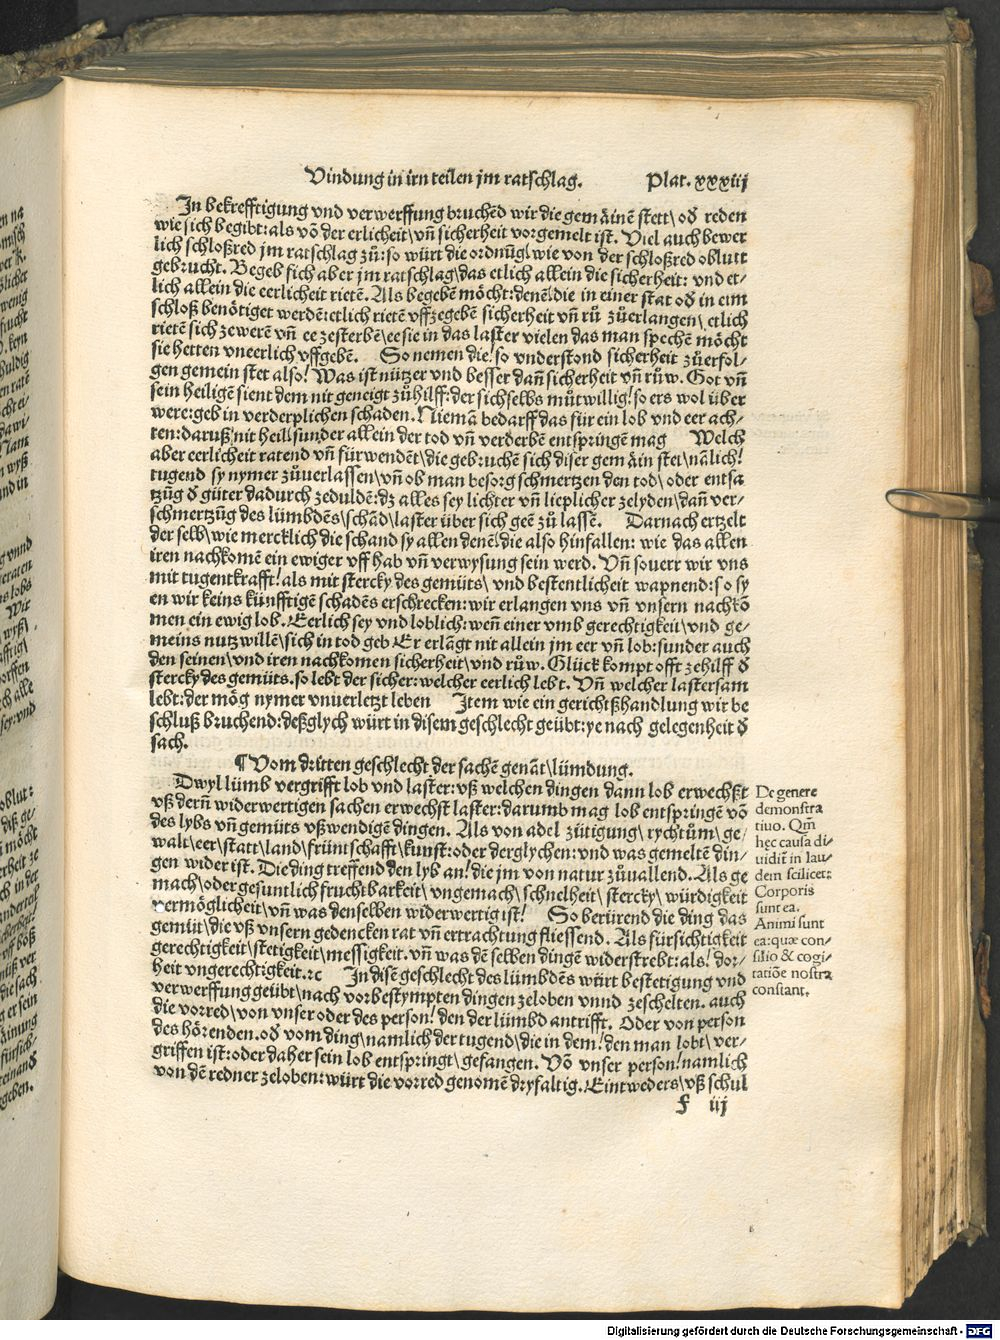 Vindung in irn teilen jm ratschlag. Plat. xxxiij
In bekrefftigung vnd verwerffung bruchēd wir die gemäinē stett\ od̄ reden
wie sich begibt: als vō der erlicheit\ vn̄ sicherheit vorgemelt ist. Viel auch bewer
lich schloßred jm ratschlag zů: so würt die ordnūg\ wie von der schloßred oblutt
gebrucht. Begeb sich aber jm ratschlag\ das etlich allein die sicherheit: vnd et-
lich allein die eerlicheit rietē. Als begebē möcht: denē\ die in einer stat od̄ in eim
schloß benötiget werdē: etlich rietē vffzegebē sicherheit vn̄ rů zůerlangen\ etlich
rietē sich zewerē vn̄ ee zesterbē\ ee sie in das laster vielen das man spechē möcht
sie hetten vneerlich vffgebē. So nemen die! so vnderstond sicherheit zůerfol-
gen gemein stet also! Was ist nützer vnd besser dan̄ sicherheit vn̄ růw. Got vn̄
sein heiligē sient dem nit geneigt zůhilff: der sichselbs můtwillig! so ers wol über
were: geb in verderplichen schaden. Niemā bedarff das für ein lob vnd eer ach-
ten: daruß! nit heil\ sunder allein der tod vn̄ verderbē entspringē mag Welch
aber eerlicheit ratend vn̄ fürwendēt\ die gebruchē sich diser gemäin stet\ nālich!
tugend sy nymer zůuerlassen\ vn̄ ob man besorg schmertzen den tod\ oder entsa
tzūg d̄ güter dadurch zeduldē: dz alles sey lichter vn̄ lieplicher zelyden\ dan̄ ver-
schmertzūg des lümbdēs\ schād\ laster über sich geē zů lassē. Darnach ertzelt
der selb\ wie mercklich die schand sy allen denē\ die also hinfallen: wie das allen
iren nachkomē ein ewiger vff hab vn̄ verwysung sein werd. Vn̄ souerr wir vns
mit tugentkrafft! als mit stercky des gemüts\ vnd bestentlicheit wapnend: so sy
en wir keins künfftigē schadēs erschrecken: wir erlangen vns vn̄ vnsern nachkō
men ein ewig lob. Eerlich sey vnd loblich: wen̄ einer vmb gerechtigkeit\ vnd ge-
meins nutz willē\ sich in tod geb Er erlāgt nit allein jm eer vn̄ lob: sunder auch
den seinen\ vnd iren nachkomen sicherheit\ vnd růw. Glück kompt offt zehilff d̄
stercky des gemüts. so lebt der sicher: welcher eerlich lebt. Vn̄ welcher lastersam
lebt: der mög nymer vnuerletzt leben Item wie ein gerichtßhandlung wir be
schluß bruchend: deßglych würt in disem geschlecht geübt: ye nach gelegenheit d̄
sach.
¶ Vom dritten geschlecht der sachē genāt\ lümdung.
Dwyl lümb vergrifft lob vnd laster: vß welchen dingen dann lob erwechßt
vß dern̄ widerwertigen sachen erwechst laster: darumb mag lob entspringē vō
des lybs vn̄ gemüts vßwendigē dingen. Als von adel zütigung\ rychtům\ ge-
walt\ eer\ statt\ land\ früntschafft\ kunst: oder derglychen: vnd was gemeltē din-
gen wider ist. Die ding treffend den lyb an! die jm von natur zůuallend. Als ge
mach\ oder gesuntlich fruchtbarkeit\ vngemach\ schnelheit\ stercky\ würdigkeit
vermöglicheit\ vn̄ was denselben widerwertig ist! So berürend die ding das
gemüt\ die vß vnsern gedencken rat vn̄ ertrachtung fliessend. Als fürsichtigkeit
gerechtigkeit\ stetigkeit\ messigkeit. vn̄ was dē selben dingē widerstrebt: als! dor-
heit vngerechtigkeit. ꝛc In disē geschlecht des lümbdēs würt bestetigung vnd
verwerffung geübt\ nach vorbestympten dingen zeloben vnnd zeschelten. auch
die vorred\ von vnser oder des person! den der lümbd antrifft. Oder von person
des hörenden. od̄ vom ding\ namlich der tugend\ die in dem! den man lobt\ ver-
griffen ist: oder daher sein lob entspringt\ gefangen. Vō vnser person! namlich
von dē redner zeloben: würt die vorred genomē dryfaltig. Eintweders\ vß schul
f iij
De genere
demonstra
tiuo. Qm̄
hęc causa di-
uidit̄ in lau-
dem scilicet:
Corporis
sunt ea.
Animi sunt
ea: quæ con-
silio & cogi-
tatiōe nostra
constant.
Digitalisierung gefördert durch die Deutsche Forschungsgemeinschaft - DFG